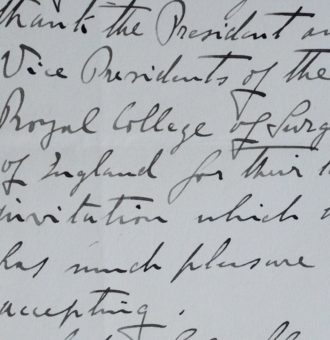 thank the President an
Vice Presidents of the
Royal College of Surg
of England for their
invitation which
has much pleasure
accepting.